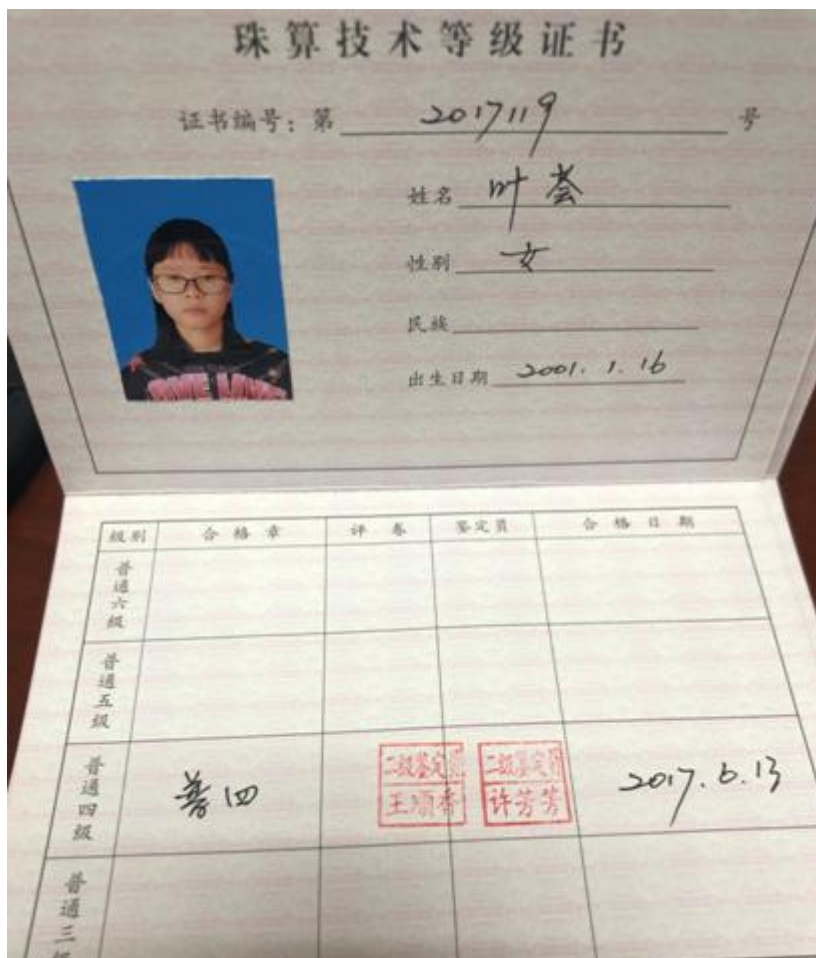 珠算技术等级证书
证书编号：第 2017119 号
姓名 叶荟
性别 女
民族
出生日期 2001. 1. 16
级别 合格章 评卷 鉴定员 合格日期
普通六级
普通五级
普通四级 普四 二级鉴定员 王顺香 二级鉴定员 许芳芳 2017.6.13
普通三级